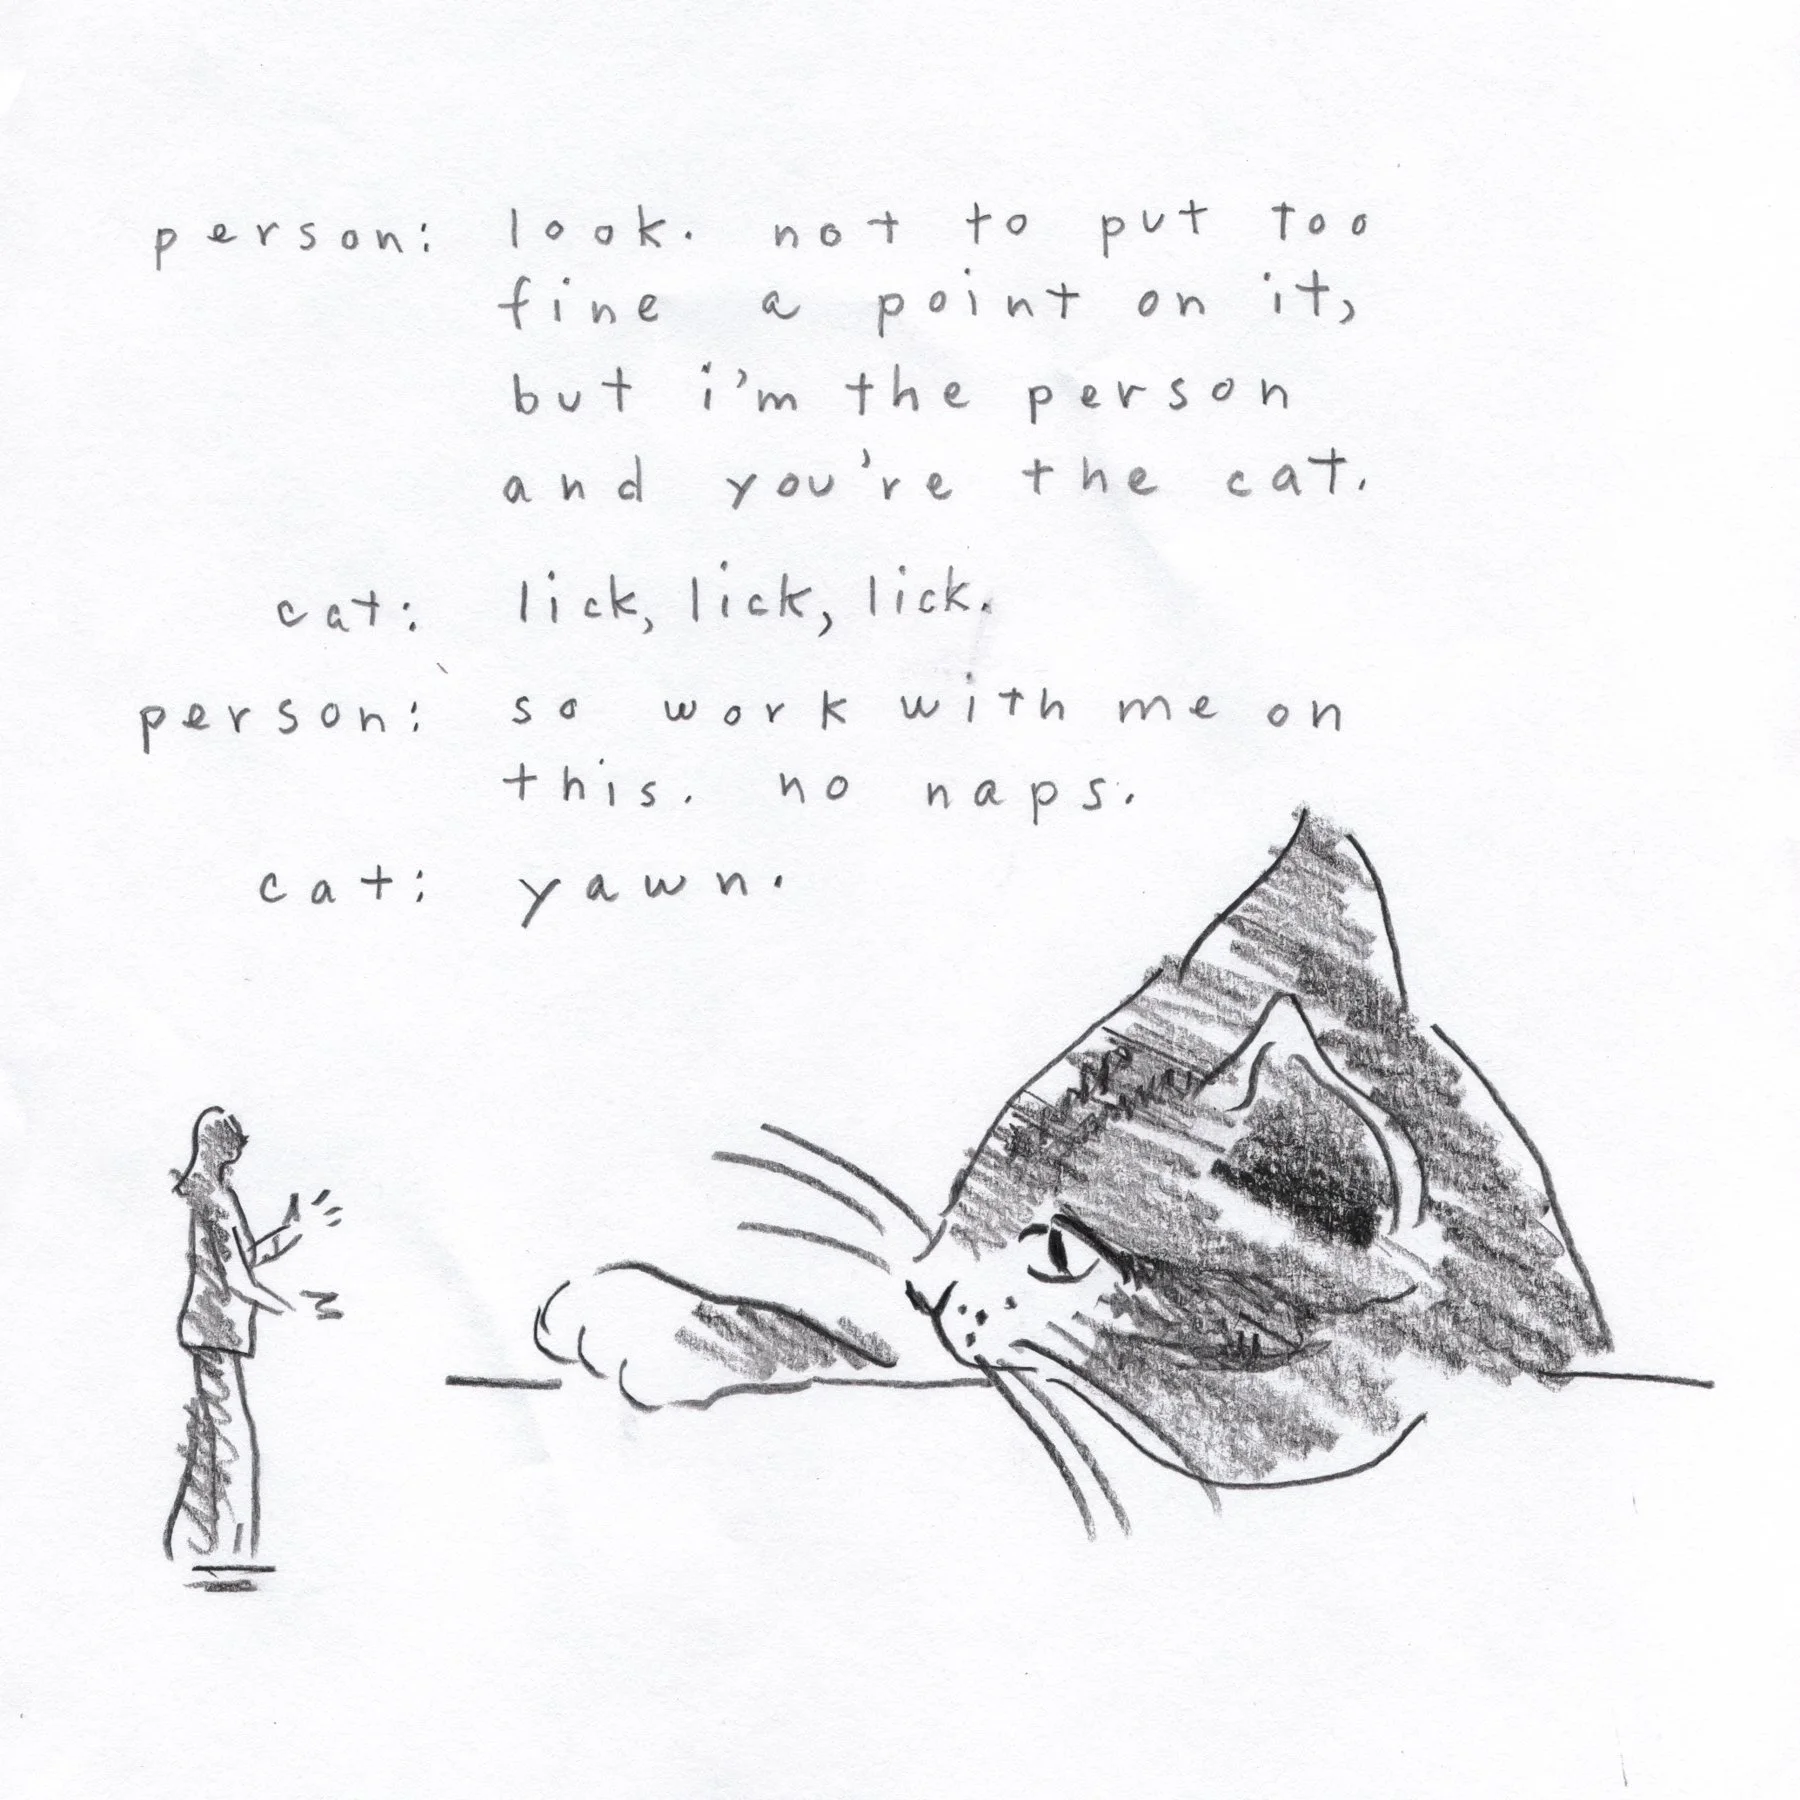 person: look. not to put too
fine a point on it,
but i'm the person
and you're the cat.
cat: lick, lick, lick.
person: so work with me on
this. no naps.
cat: yawn.